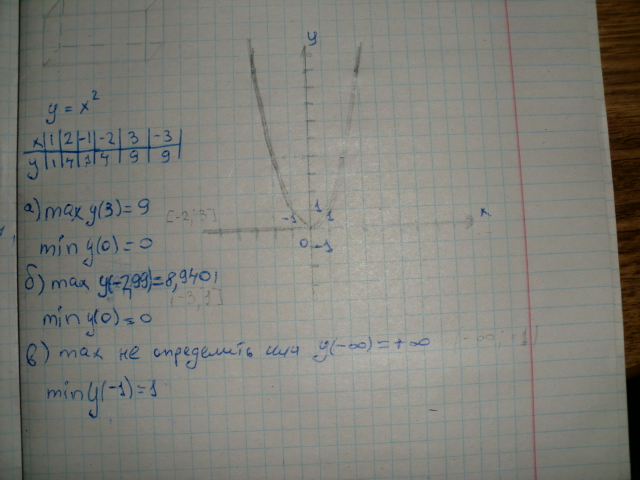 y = x²
x 1 2 -1 -2 3 -3
y 1 4 1 4 9 9
а) max y(3) = 9 [-2;3]
min y(0) = 0
б) max y(-2,99) = 8,9401
[-3,1]
min y(0) = 0
в) max не определить или y(-∞) = +∞
min y(-1) = 1
y
-1 1 1 x
0 -1